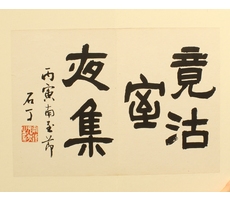 竟沽
室
夜集
丙寅南至節
石丁